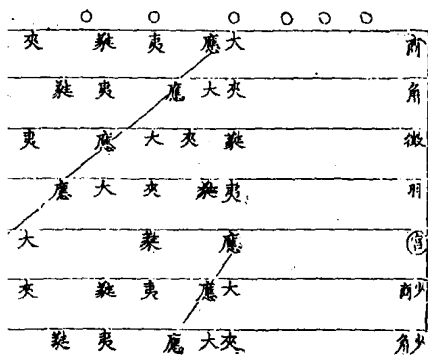 夾 蕤 夷 應 大 商
蕤 夷 應 大 夾 角
夷 應 大 夾 蕤 徵
應 大 夾 蕤 夷 羽
大 蕤 應 宮
夾 蕤 夷 應 大 少商
蕤 夷 應 大 夾 少角